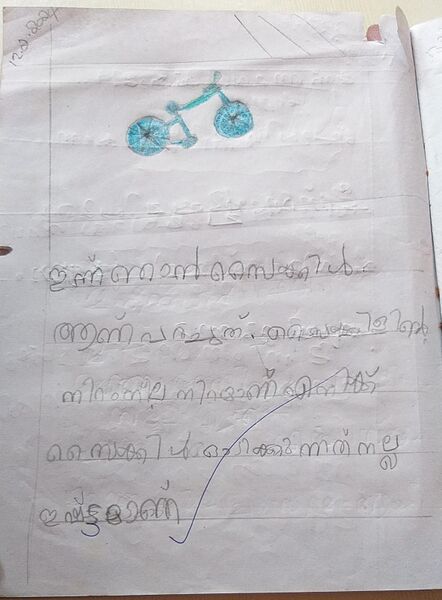 12.8.2024
ഇന്ന് ഞാൻ സൈക്കിൾ
ആണ് പഠിച്ചത്. സൈക്കിളിൻ്റെ
നിറം നീല നിറമാണ് എനിക്ക്
സൈക്കിൾ ഓടിക്കുന്നത് നല്ല
ഇഷ്ട്ടമാണ്